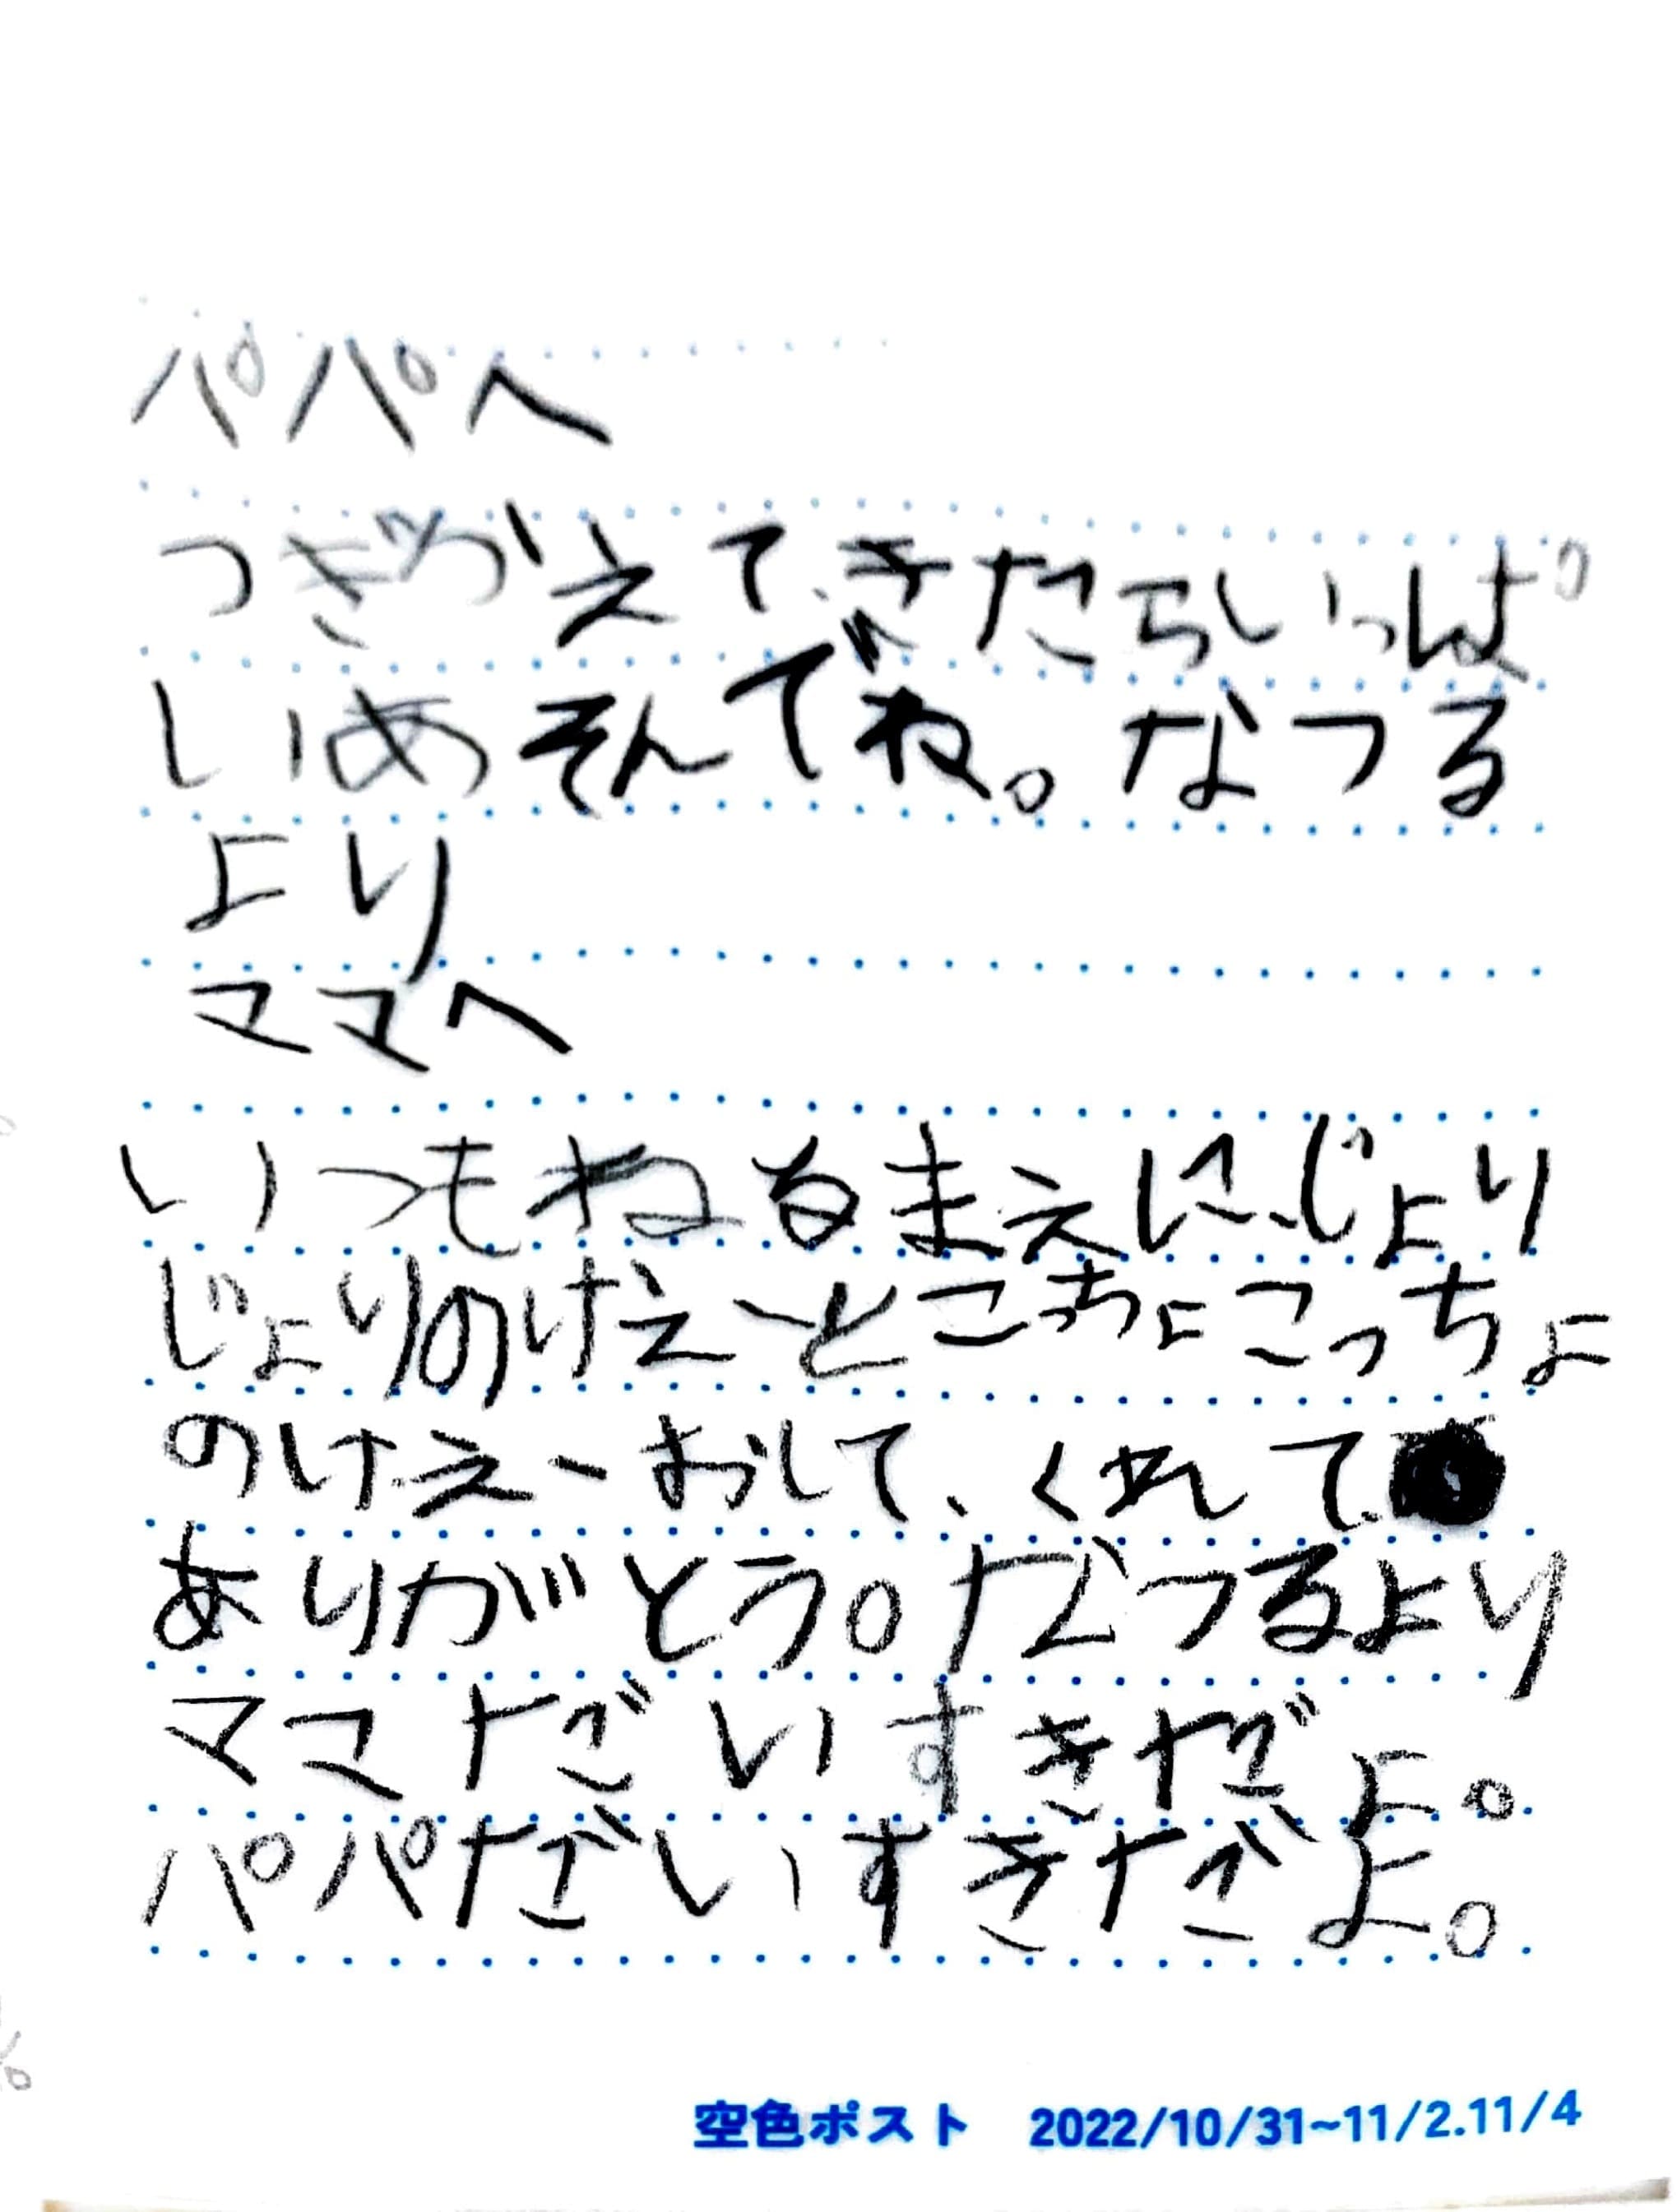 パパへ
つぎがえて、きたらいっぱ
いめそんでね。なつる
より
ママへ
いつもねるまえに、じょり
じょりのけえーとこっちょこっちょ
のけえーおして、くれて
ありがとう。なつるより
ママだいすきだよ。
パパだいすきだよ。
空色ポスト 2022/10/31~11/2.11/4